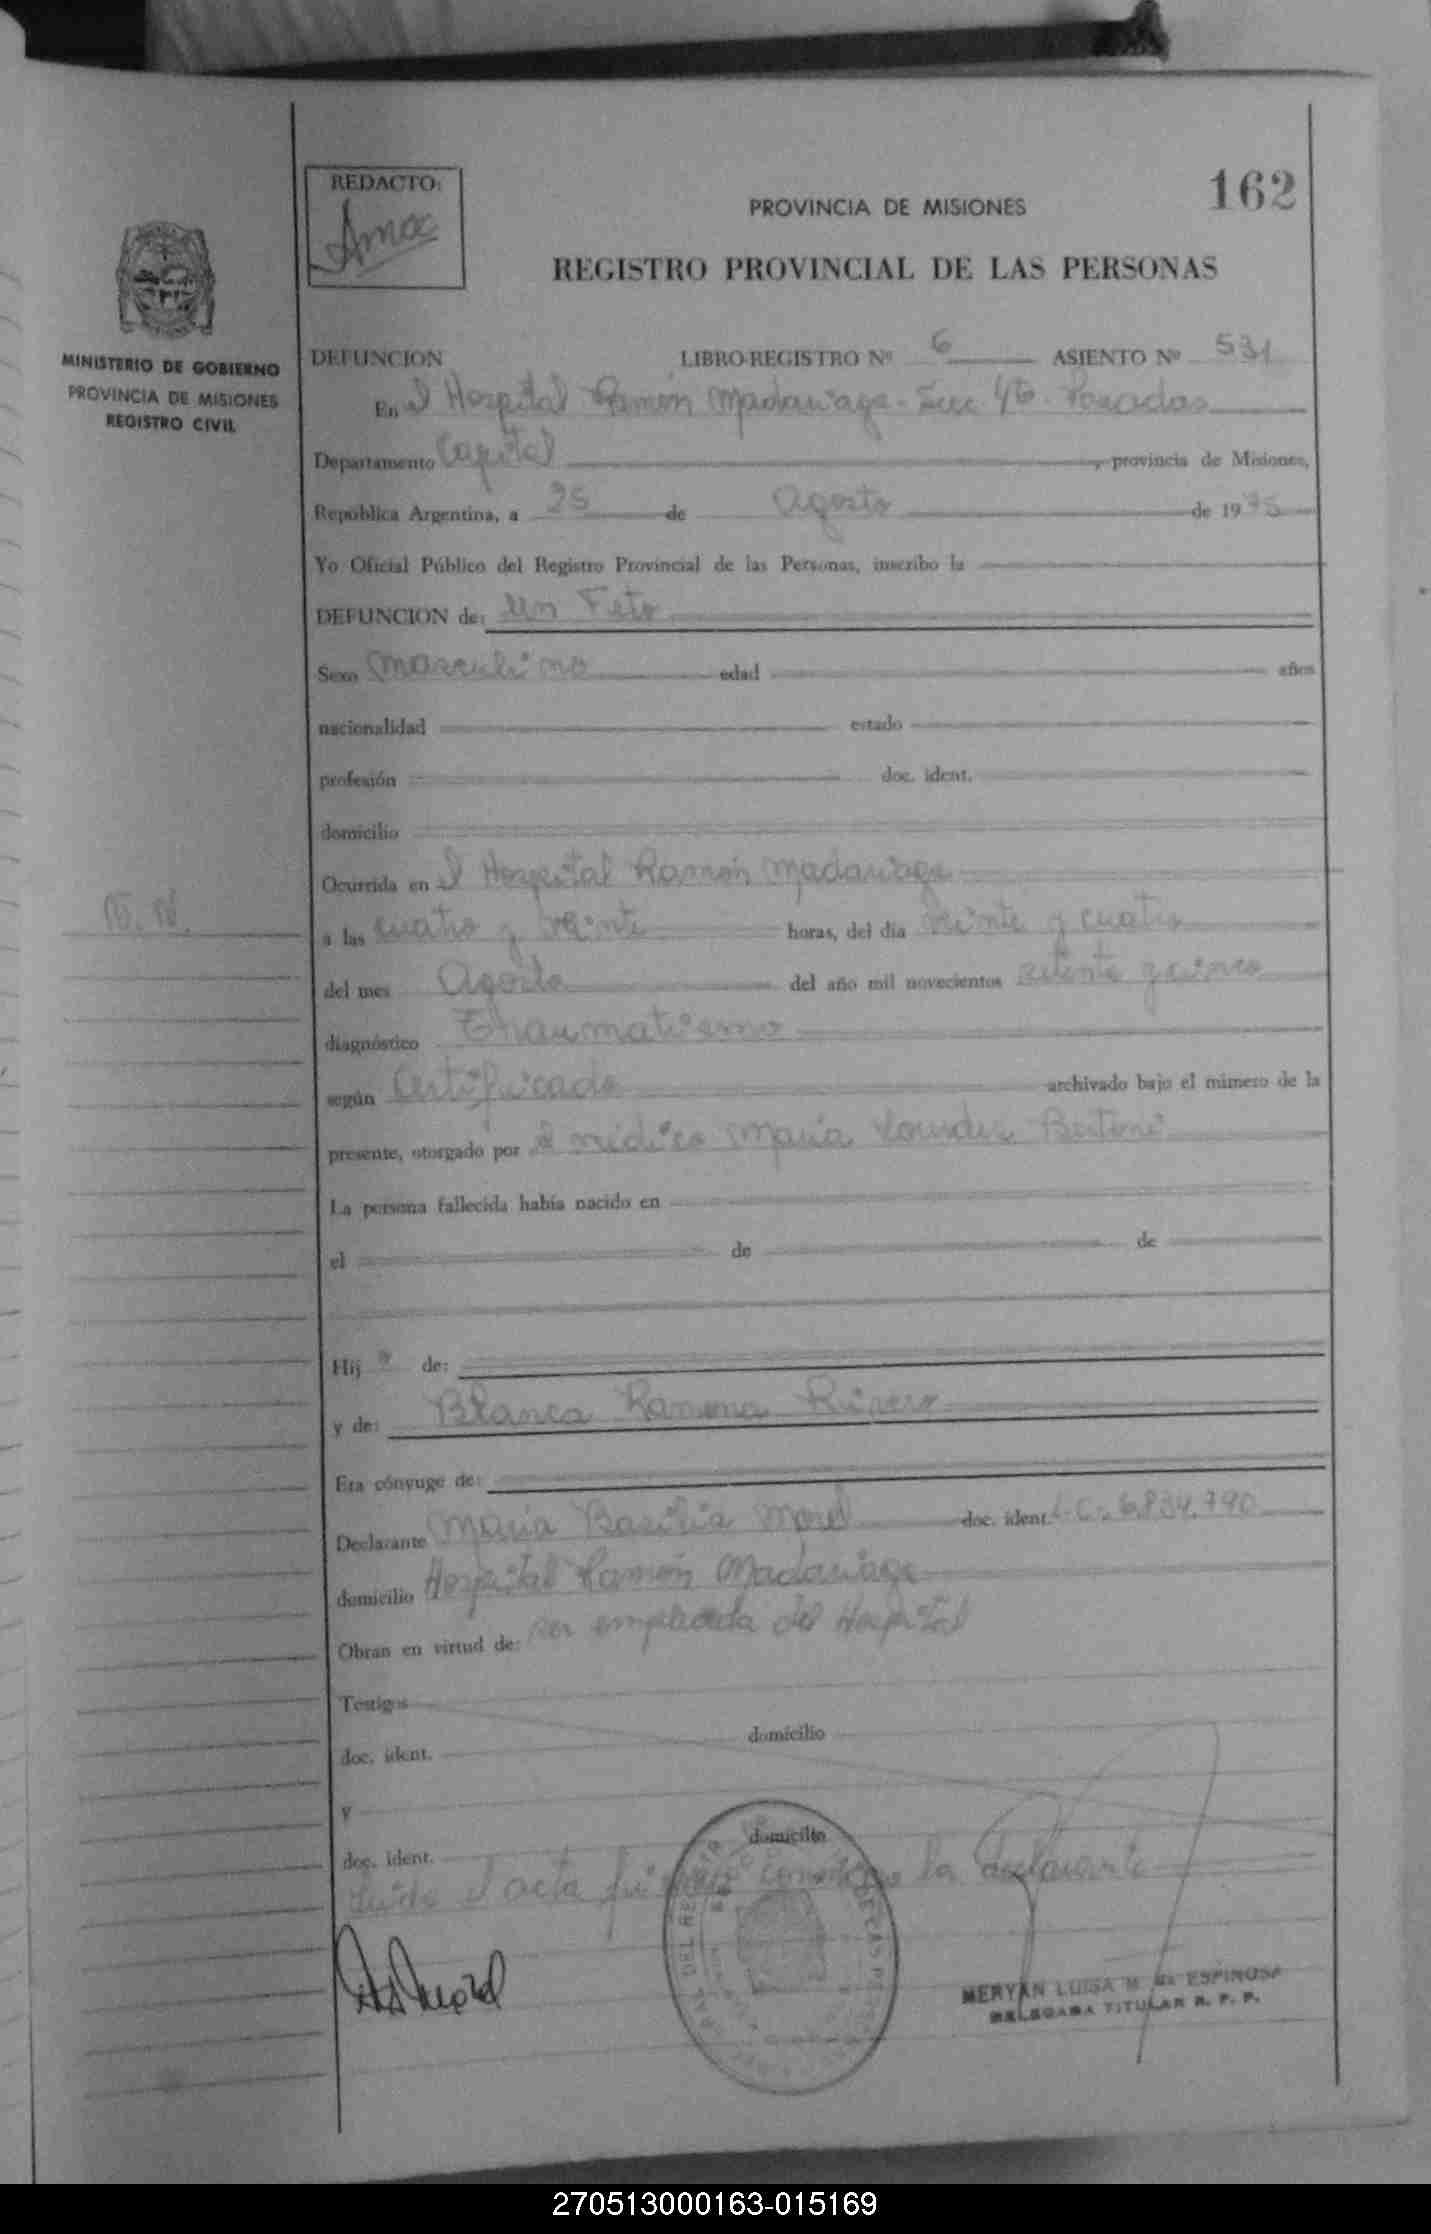 162
REDACTO:
PROVINCIA DE MISIONES
REGISTRO PROVINCIAL DE LAS PERSONAS
MINISTERIO DE GOBIERNO
PROVINCIA DE MISIONES
REGISTRO CIVIL
DEFUNCION LIBRO-REGISTRO Nº 6 ASIENTO Nº 531
En el Hospital Ramón Madariaga - Posadas
Departamento Capital, provincia de Misiones,
República Argentina, a 25 de Agosto de 1975
Yo Oficial Público del Registro Provincial de las Personas, inscribo la
DEFUNCION de: Un Feto
Sexo Masculino edad años
nacionalidad estado
profesión doc. ident.
domicilio
Ocurrida en el Hospital Ramón Madariaga
N.N.
a las cuatro y veinte horas, del día veinte y cuatro
del mes Agosto del año mil novecientos setenta y cinco
diagnóstico Thaumatismo
según Certificado archivado bajo el número de la
presente, otorgado por el médico María Lourdes Bertoni
La persona fallecida había nacido en
el de de
Hijo de:
y de: Blanca Ramona Rivero
Era cónyuge de:
Declarante María Basilia Morel doc. ident. L.C. 6.834.790
domicilio Hospital Ramón Madariaga
Obran en virtud de: ser empleada del Hospital
Testigos
doc. ident. domicilio
y
doc. ident. domicilio
Leida el acta firma conmigo la declarante
MERYAN LUISA M. de ESPINOSA
DELEGADA TITULAR R. P. P.
270513000163-015169